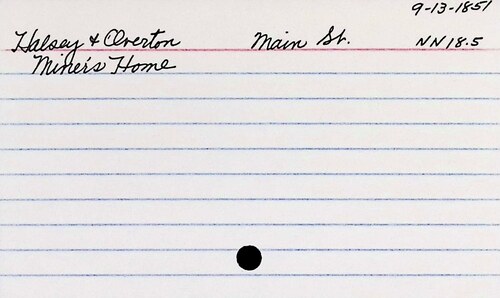 9-13-1851
Halsey & Overton Main St. NN18.5
Miner's Home